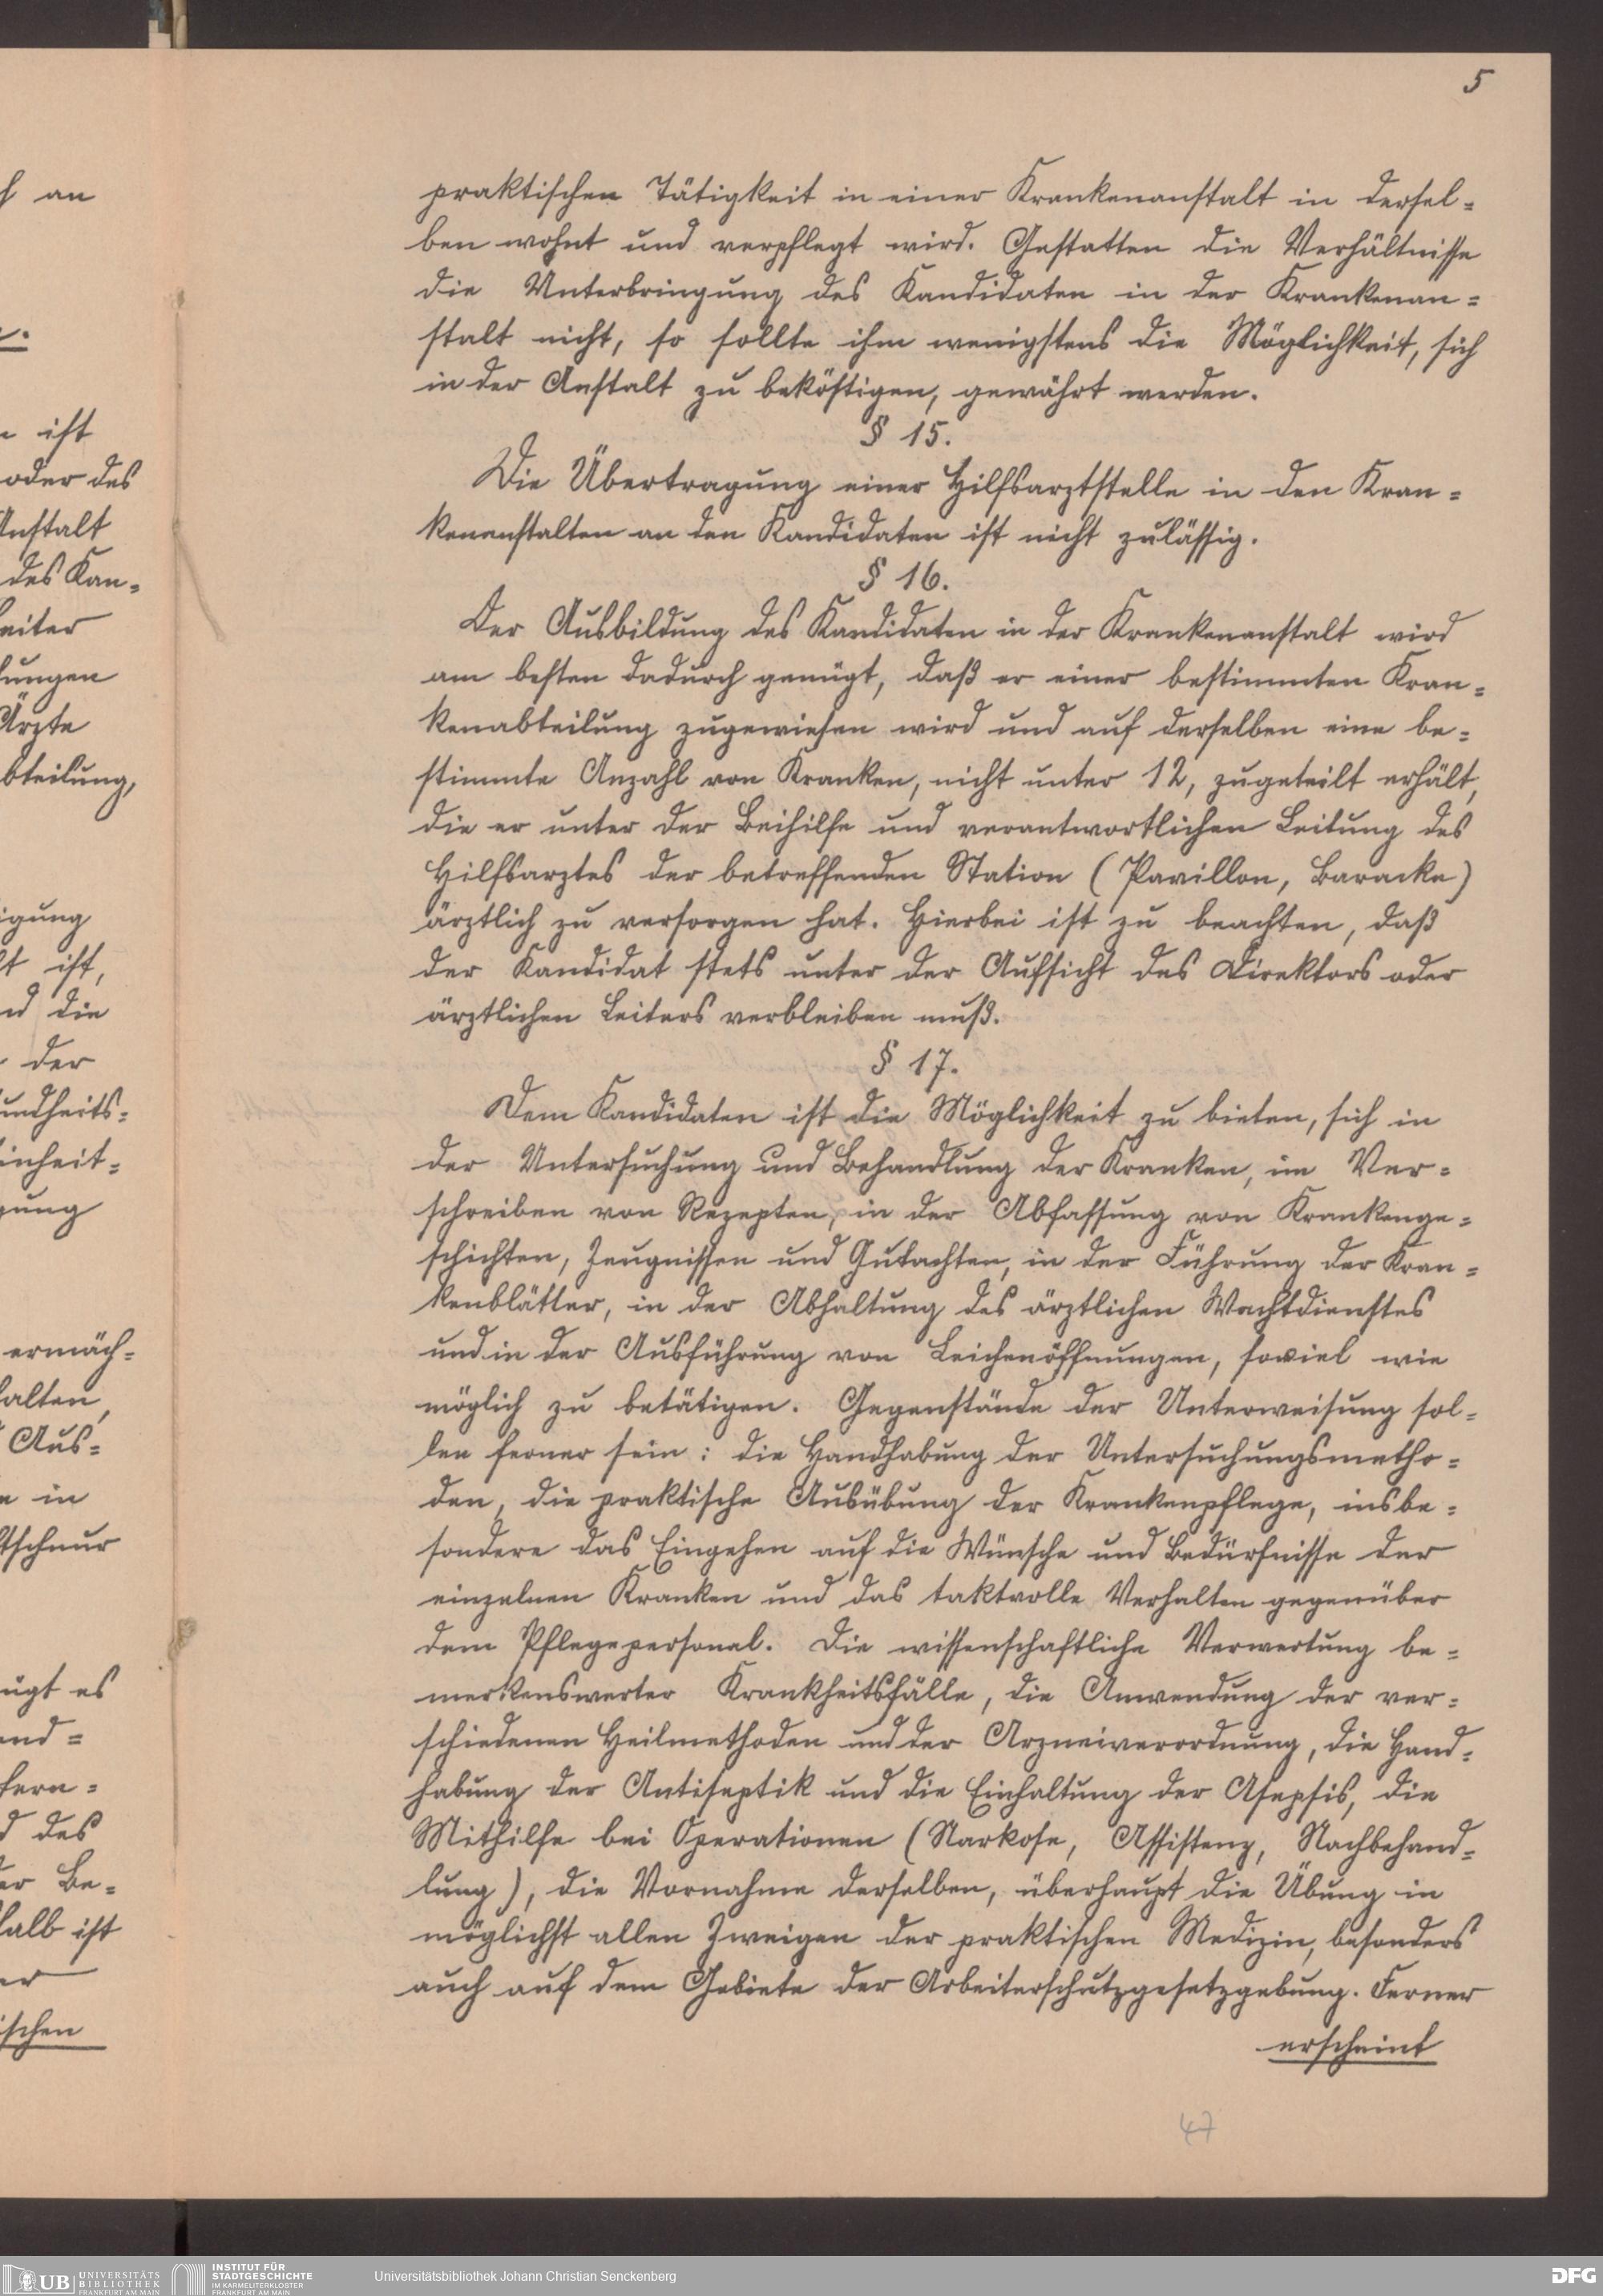 5
praktischen Tätigkeit in einer Krankenanstalt in dersel=
ben wohnt und verpflegt wird. Gestatten die Verhältnisse
die Unterbringung des Kandidaten in der Krankenan=
stalt nicht, so sollte ihm wenigstens die Möglichkeit, sich
in der Anstalt zu beköstigen, gewährt werden.
§ 15.
Die Übertragung einer Hilfsarztstelle in den Kran=
kenanstalten an den Kandidaten ist nicht zulässig.
§ 16.
Der Ausbildung des Kandidaten in der Krankenanstalt wird
am besten dadurch genügt, daß er einer bestimmten Kran=
kenabteilung zugewiesen wird und auf derselben eine be=
stimmte Anzahl von Kranken, nicht unter 12, zugeteilt erhält,
die er unter der Beihilfe und verantwortlichen Leitung des
Hilfsarztes der betreffenden Station (Pavillon, Baracke)
ärztlich zu versorgen hat. Hierbei ist zu beachten, daß
der Kandidat stets unter der Aufsicht des Direktors oder
ärztlichen Leiters verbleiben muß.
§ 17.
Dem Kandidaten ist die Möglichkeit zu bieten, sich in
der Untersuchung und Behandlung der Kranken, im Ver=
schreiben von Rezepten, in der Abfassung von Krankenge=
schichten, Zeugnissen und Gutachten, in der Führung der Kran=
kenblätter, in der Abhaltung des ärztlichen Wachtdienstes
und in der Ausführung von Leichenöffnungen, soviel wie
möglich zu betätigen. Gegenstände der Unterweisung sol=
len ferner sein: die Handhabung der Untersuchungsmetho=
den, die praktische Ausübung der Krankenpflege, insbe=
sondere das Eingehen auf die Wünsche und Bedürfnisse der
einzelnen Kranken und das taktvolle Verhalten gegenüber
dem Pflegepersonal. Die wissenschaftliche Verwertung be=
merkenswerter Krankheitsfälle, die Anwendung der ver=
schiedenen Heilmethoden und der Arzneiverordnung, die Hand=
habung der Antiseptik und die Einhaltung der Asepsis, die
Mithilfe bei Operationen (Narkose, Assistenz, Nachbehand=
lung), die Vornahme derselben, überhaupt die Übung in
möglichst allen Zweigen der praktischen Medizin, besonders
auch auf dem Gebiete der Arbeiterschutzgesetzgebung. Ferner
erscheint
47
an
ist
oder des
Anstalt
des Kan=
leiter
lungen
Ärzte
bteilung,
igung
ist,
d die
der
undheits=
inheit=
gung
ermäch=
halten,
Aus=
in
tschnur
ügt es
end=
fern=
d des
er Be=
halb ist
er
ischen
UB UNIVERSITÄTS BIBLIOTHEK FRANKFURT AM MAIN
INSTITUT FÜR STADTGESCHICHTE IM KARMELITERKLOSTER FRANKFURT AM MAIN
Universitätsbibliothek Johann Christian Senckenberg
DFG